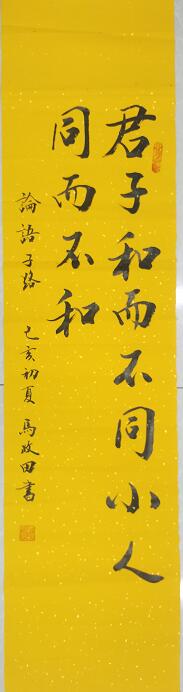 君子和而不同小人
同而不和
論語子路 己亥初夏 馬政田書